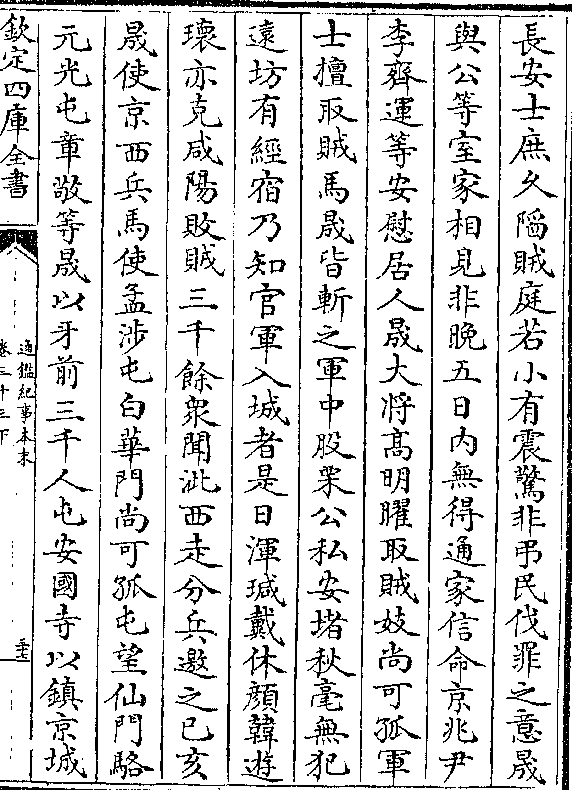 長安士庶乆陷賊庭若小有震驚非弔民伐罪之意晟
與公等室家相見非晚五日内無得通家信命京兆尹
李齊運等安慰居人晟大将髙明曜取賊妓尚可孤軍
士擅取賊馬晟皆斬之軍中股栗公私安堵秋毫無犯
逺坊有經宿乃知官軍入城者是日渾瑊戴休顔韓遊
瓌亦克咸陽敗賊三千餘衆聞泚西走分兵邀之已亥
晟使京西兵馬使孟渉屯白華門尚可孤屯望仙門駱
元光屯章敬等晟以牙前三千人屯安國寺以鎮京城
欽定四庫全書
通鑑紀事本末
卷三十三下
三十七